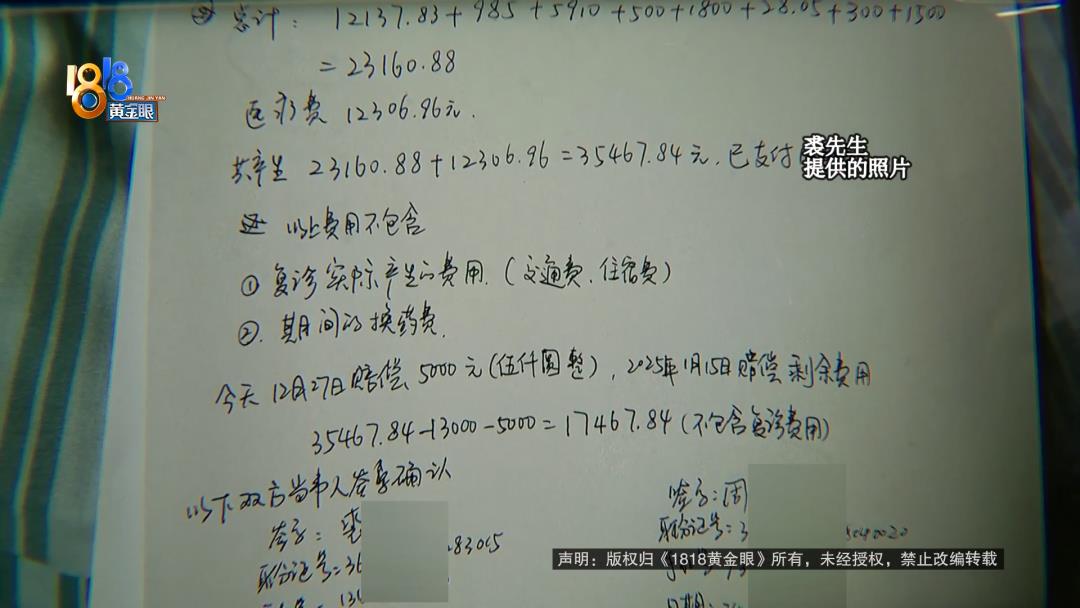 总计: 12137.83+985+5910+500+1800+28.05+300+1500
=23160.88
1818
HUANG JIN YAN
黄金眼
医疗费 12306.96元.
共产生 23160.88+12306.96=35467.84元,已支付
裘先生
提供的照片
以上费用不包含
① 复诊实际产生的费用.(交通费、住宿费)
②. 期间的换药费.
今天12月27日赔偿5000元(伍仟圆整),2025年1月15日赔偿剩余费用
35467.84-13000-5000=17467.84(不包含复诊费用)
以下双方当事人签字确认
签字:裘
签字:周
身份证号:36
283015
身份证号:3
声明:版权归《1818黄金眼》所有,未经授权,禁止改编转载